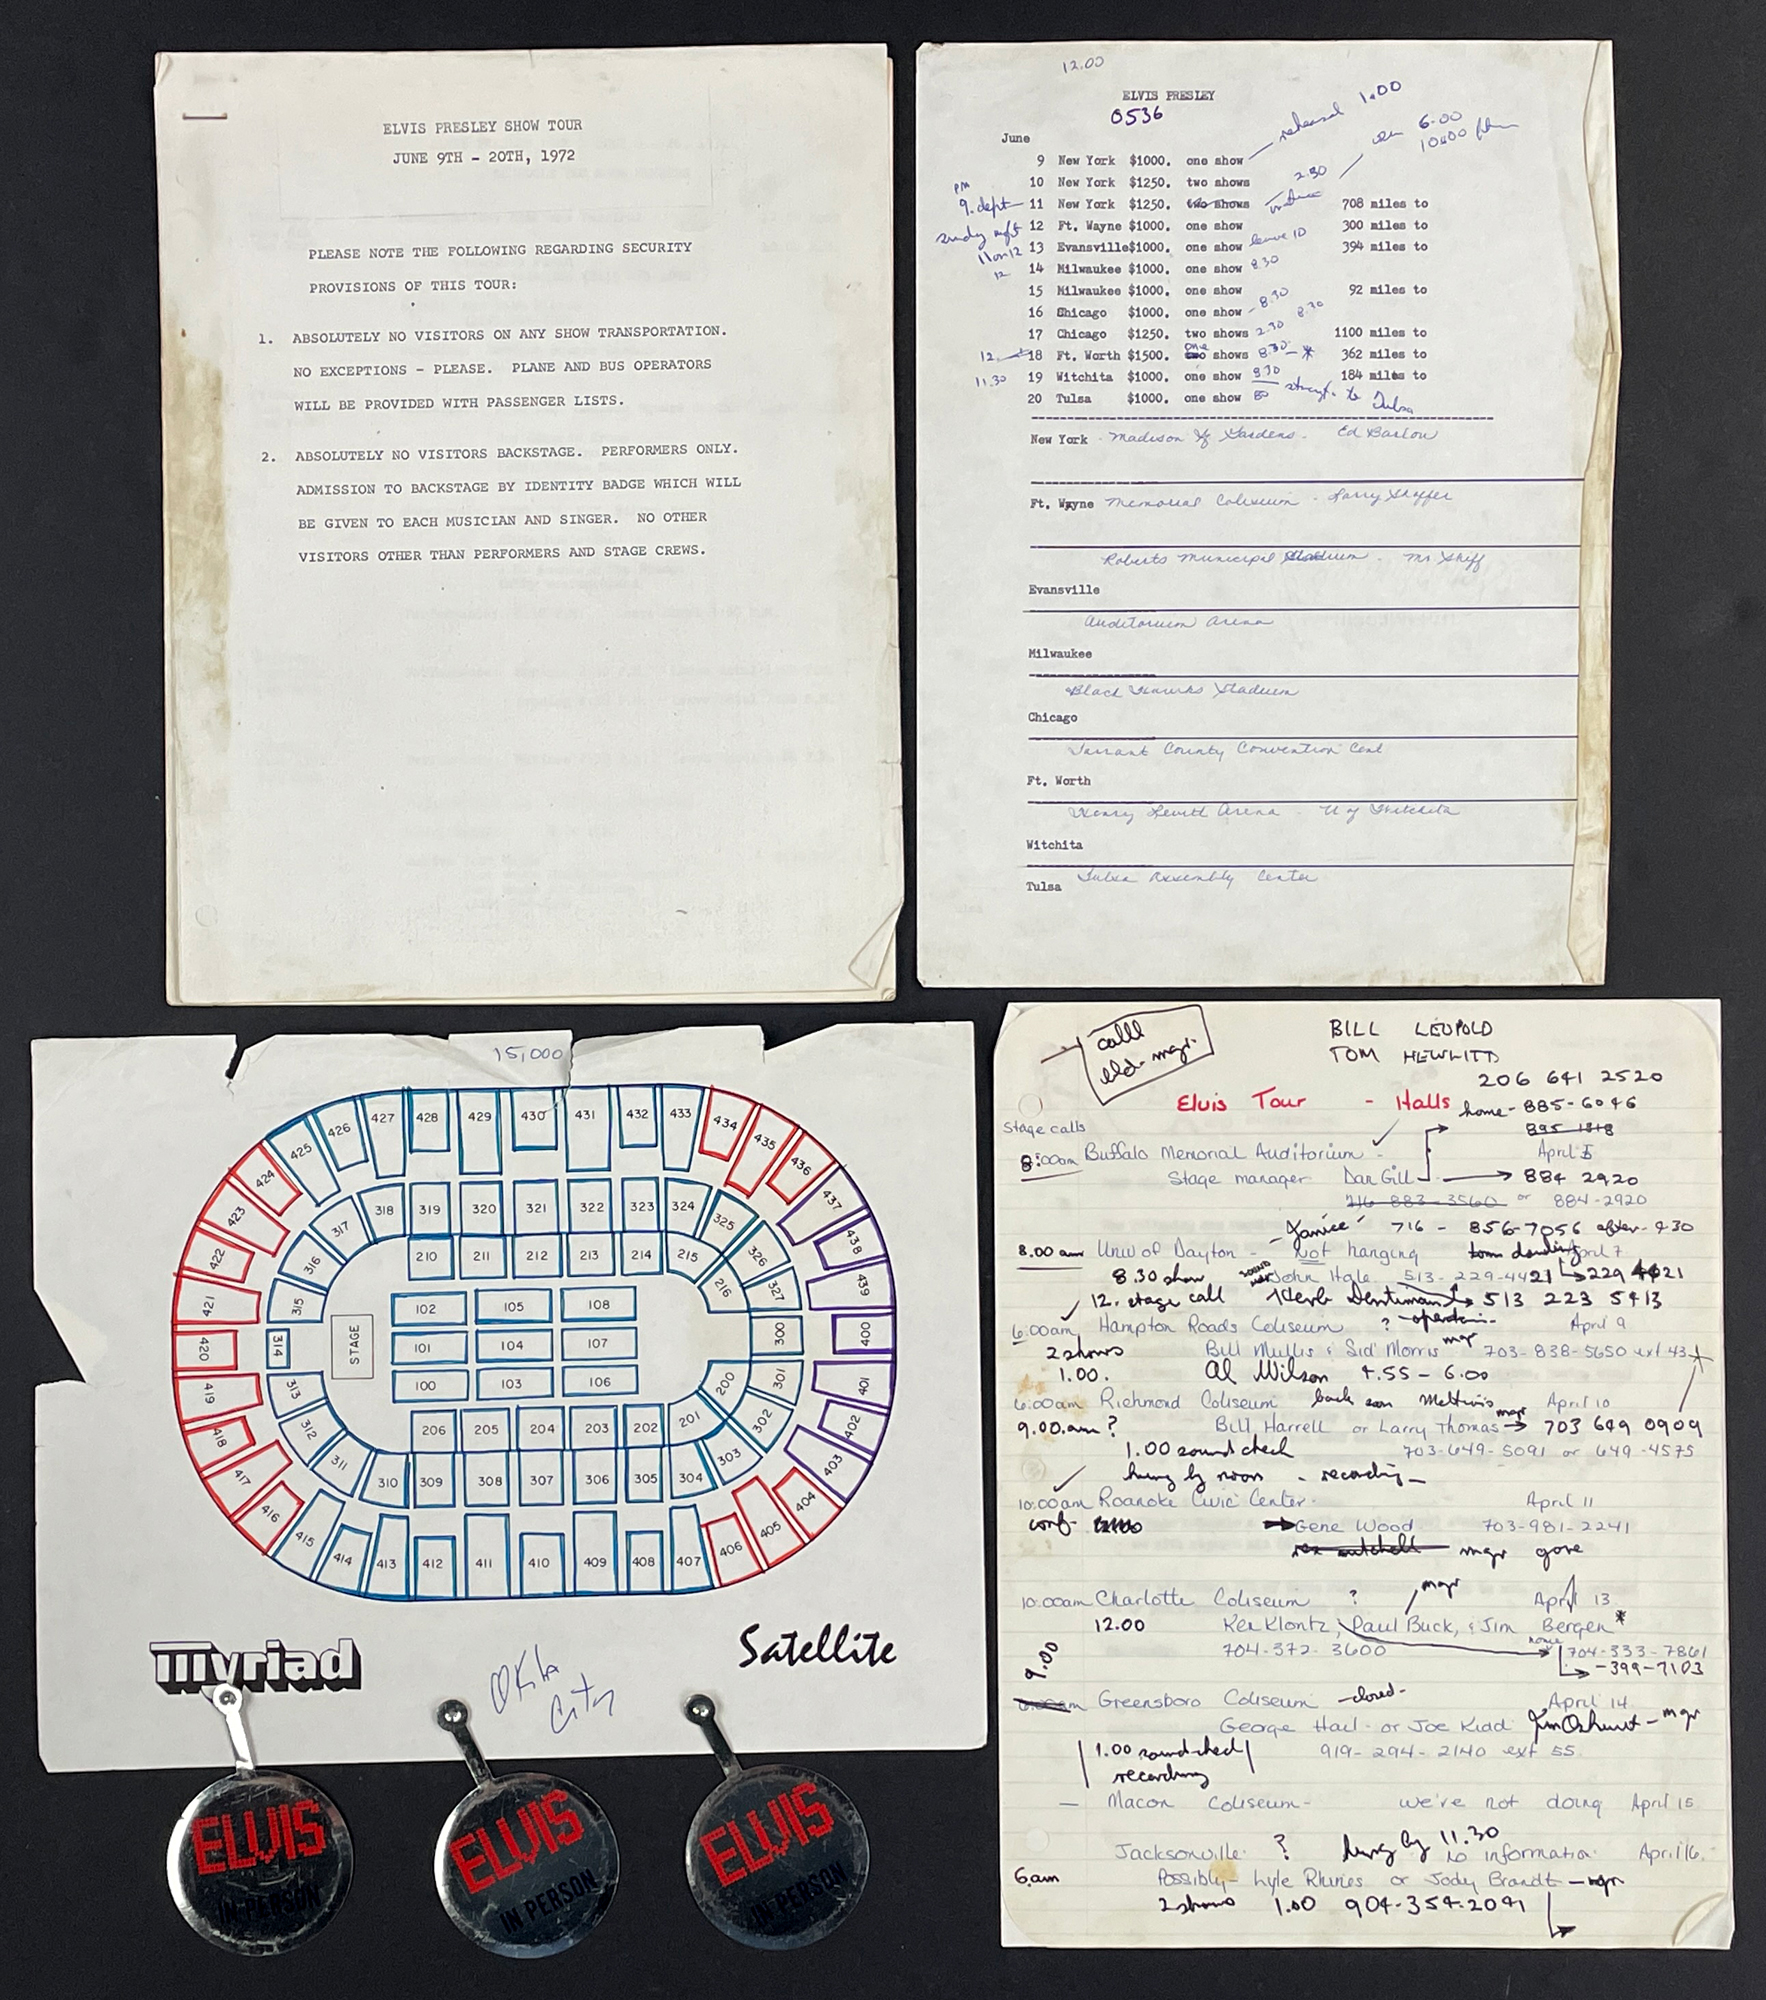 ELVIS PRESLEY SHOW TOUR
JUNE 9TH - 20TH, 1972
PLEASE NOTE THE FOLLOWING REGARDING SECURITY
PROVISIONS OF THIS TOUR:
1. ABSOLUTELY NO VISITORS ON ANY SHOW TRANSPORTATION.
NO EXCEPTIONS - PLEASE. PLANE AND BUS OPERATORS
WILL BE PROVIDED WITH PASSENGER LISTS.
2. ABSOLUTELY NO VISITORS BACKSTAGE. PERFORMERS ONLY.
ADMISSION TO BACKSTAGE BY IDENTITY BADGE WHICH WILL
BE GIVEN TO EACH MUSICIAN AND SINGER. NO OTHER
VISITORS OTHER THAN PERFORMERS AND STAGE CREWS.
12.00
ELVIS PRESLEY
0536
rehearsal 1.00
6.00
10.00
June
9 New York $1000. one show
10 New York $1250. two shows 2.30
PM
9. dept 11 New York $1250. two shows 708 miles to
12 Ft. Wayne $1000. one show 300 miles to
13 Evansville $1000. one show leave 10 394 miles to
11 or 12
12 14 Milwaukee $1000. one show 8.30
15 Milwaukee $1000. one show 8.30 92 miles to
16 Chicago $1000. one show 8.30
17 Chicago $1250. two shows 2.30 1100 miles to
12 18 Ft. Worth $1500. one two shows 8.30 * 362 miles to
11.30 19 Witchita $1000. one show 8.30 184 miles to
20 Tulsa $1000. one show to Tulsa
New York - Madison Sq Gardens - Ed Barlow
Ft. Wayne Memorial Coliseum - Larry Shaffer
Roberts Municipal Stadium - Mr Shiff
Evansville
Auditorium Arena
Milwaukee
Black Hawks Stadium
Chicago
Tarrant County Convention Cent
Ft. Worth
Henry Levitt Arena - U of Witchita
Witchita
Tulsa Assembly Center
Tulsa
15,000
425 426 427 428 429 430 431 432 433 434 435 436
424 437
423 438
422 439
421 400
420 401
419 402
418 403
417 404
416 405
415 414 413 412 411 410 409 408 407 406
317 318 319 320 321 322 323 324 325
316 326
315 327
314 300
313 301
312 302
311 310 309 308 307 306 305 304 303
210 211 212 213 214 215
216
200
206 205 204 203 202 201
STAGE
102 105 108
101 104 107
100 103 106
Myriad
Satellite
Okla
City
ELVIS
IN PERSON
ELVIS
IN PERSON
ELVIS
IN PERSON
call
eld. mgr.
BILL LEOPOLD
TOM HEWLITT
206 641 2520
Elvis Tour - Halls home - 885-6046
Stage calls 895 1818
8:00am Buffalo Memorial Auditorium - April 5
Stage manager Dan Gill 884 2920
716 883-3560 or 884-2920
Janice 716 - 856-7056 after 430
8.00 am Univ of Dayton - Not hanging April 7
8.30 show John Hale 513-229-4421 229 4621
12. stage call Herb 513 223 5413
6:00am Hampton Roads Coliseum ? April 9
2 shows Bill Mullis & Sid Morris mgr 703-838-5650 ext 43
1.00. Al Wilson 4.55 - 6.00
6:00am Richmond Coliseum April 10
9.00.am? Bill Harrell or Larry Thomas mgr 703 649 0909
1.00 sound check 703-649-5091 or 649-4575
hung by noon - recording
10:00am Roanoke Civic Center April 11
conf. Gene Wood 703-981-2241
mgr gore
10:00am Charlotte Coliseum ? mgr April 13
12.00 Ken Klontz, Paul Buck, & Jim Bergen *
704-372-3600 home 704-333-7861
-399-7103
9.00
Greensboro Coliseum - closed - April 14
George Hail or Joe Kidd - mgr
1.00 sound check 919-294-2140 ext 55
recording
— Macon Coliseum - we're not doing April 15
Jacksonville ? hung by 11.30 No information April 16.
6.am Possibly - Lyle Rhines or Jody Brandt - mgr
2 shows 1.00 904-354-2041